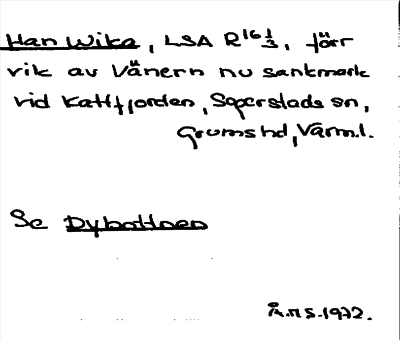 Han Wika, LSA R16 1/3, förr
vik av Vänern nu sankmark
vid Kattfjorden, Segerstads sn,
Grums hd, Värml.
Se Dybottnen
Å.n S. 1972.